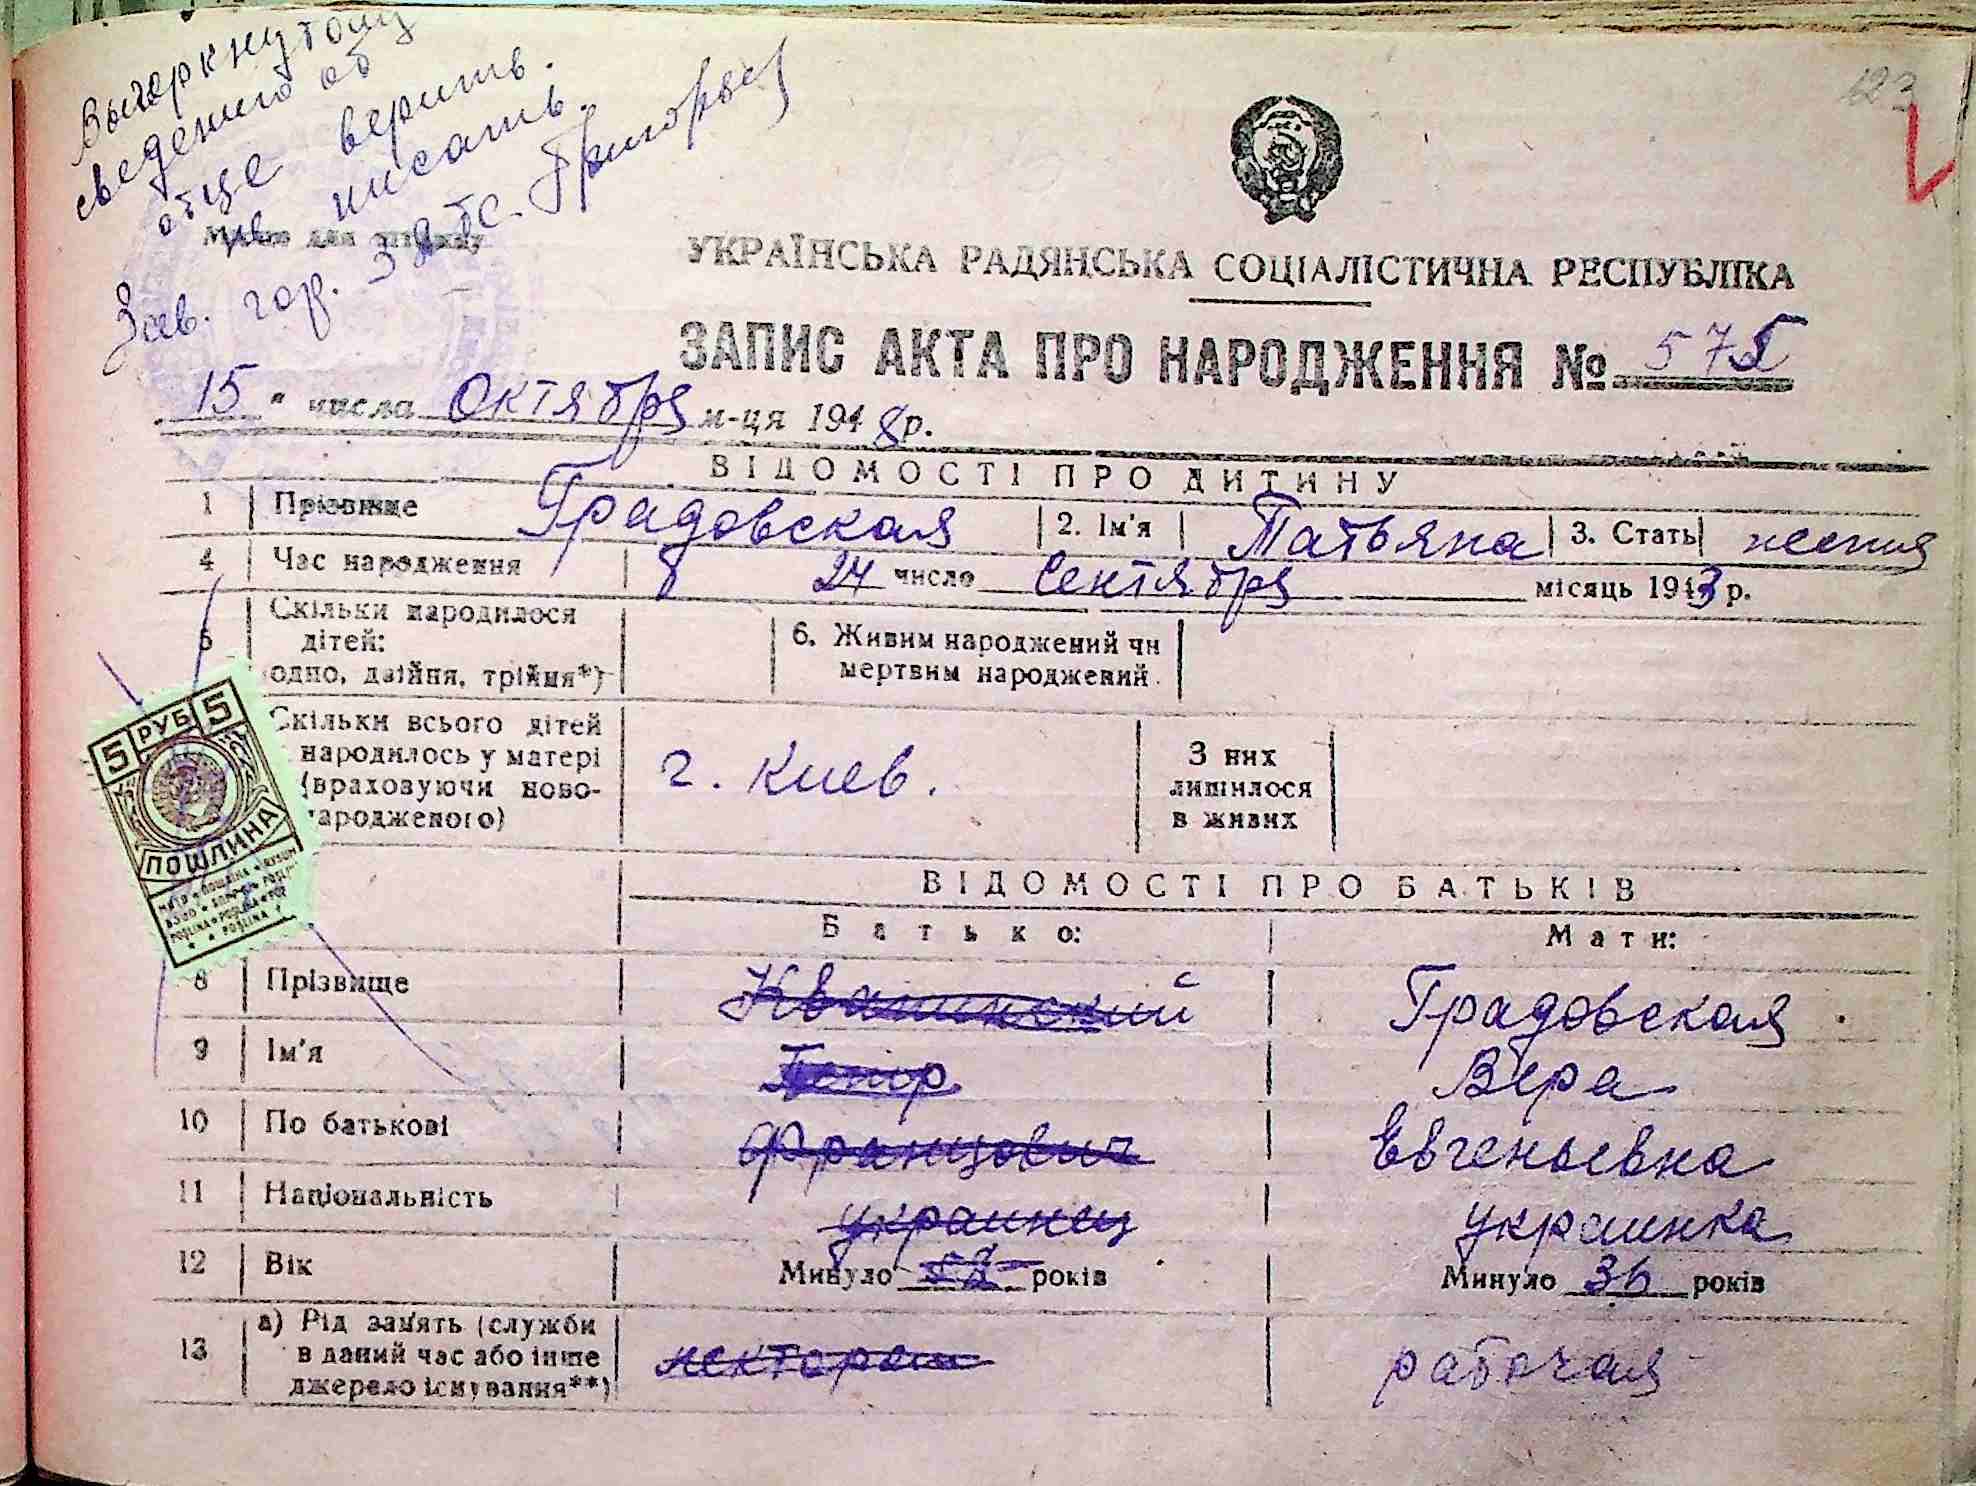 Вычеркнутому
сведению об
отце верить.
не писать.
Зав. гор. Загс. Григорьев
Місце для штампу
123
УКРАЇНСЬКА РАДЯНСЬКА СОЦІАЛІСТИЧНА РЕСПУБЛІКА
ЗАПИС АКТА ПРО НАРОДЖЕННЯ № 575
15 " числа Октября м-ця 1948 р.
ВІДОМОСТІ ПРО ДИТИНУ
1 Прізвище Градовская 2. Ім'я Татьяна 3. Стать женская
4 Час народження 24 число Сентября місяць 1943 р.
5 Скільки народилося дітей: одно, двійня, трійня*)
6. Живим народжений чи мертвим народжений
Скільки всього дітей народилось у матері (враховуючи новонародженого) г. Киев.
З них лишилося в живих
5 РУБ 5
ПОШЛИНА
ВІДОМОСТІ ПРО БАТЬКІВ
Батько: Мати:
8 Прізвище Квашинский Градовская
9 Ім'я Петр Вера
10 По батькові Францович Евгеньевна
11 Національність украинец украинка
12 Вік Минуло 52 років Минуло 36 років
13 а) Рід занять (служби в даний час або інше джерело існування**) лектором рабочая